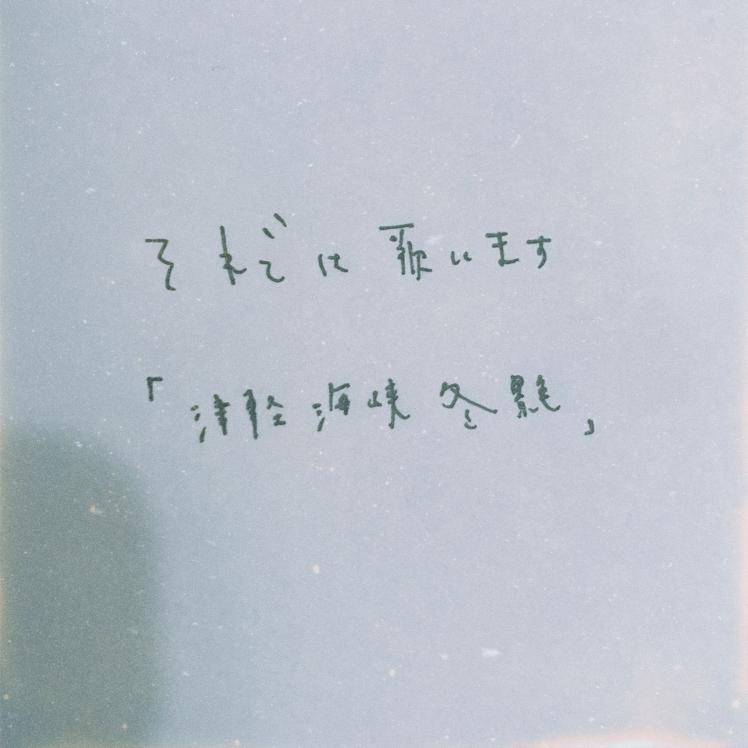 それでは歌います
「津軽海峡冬景色」